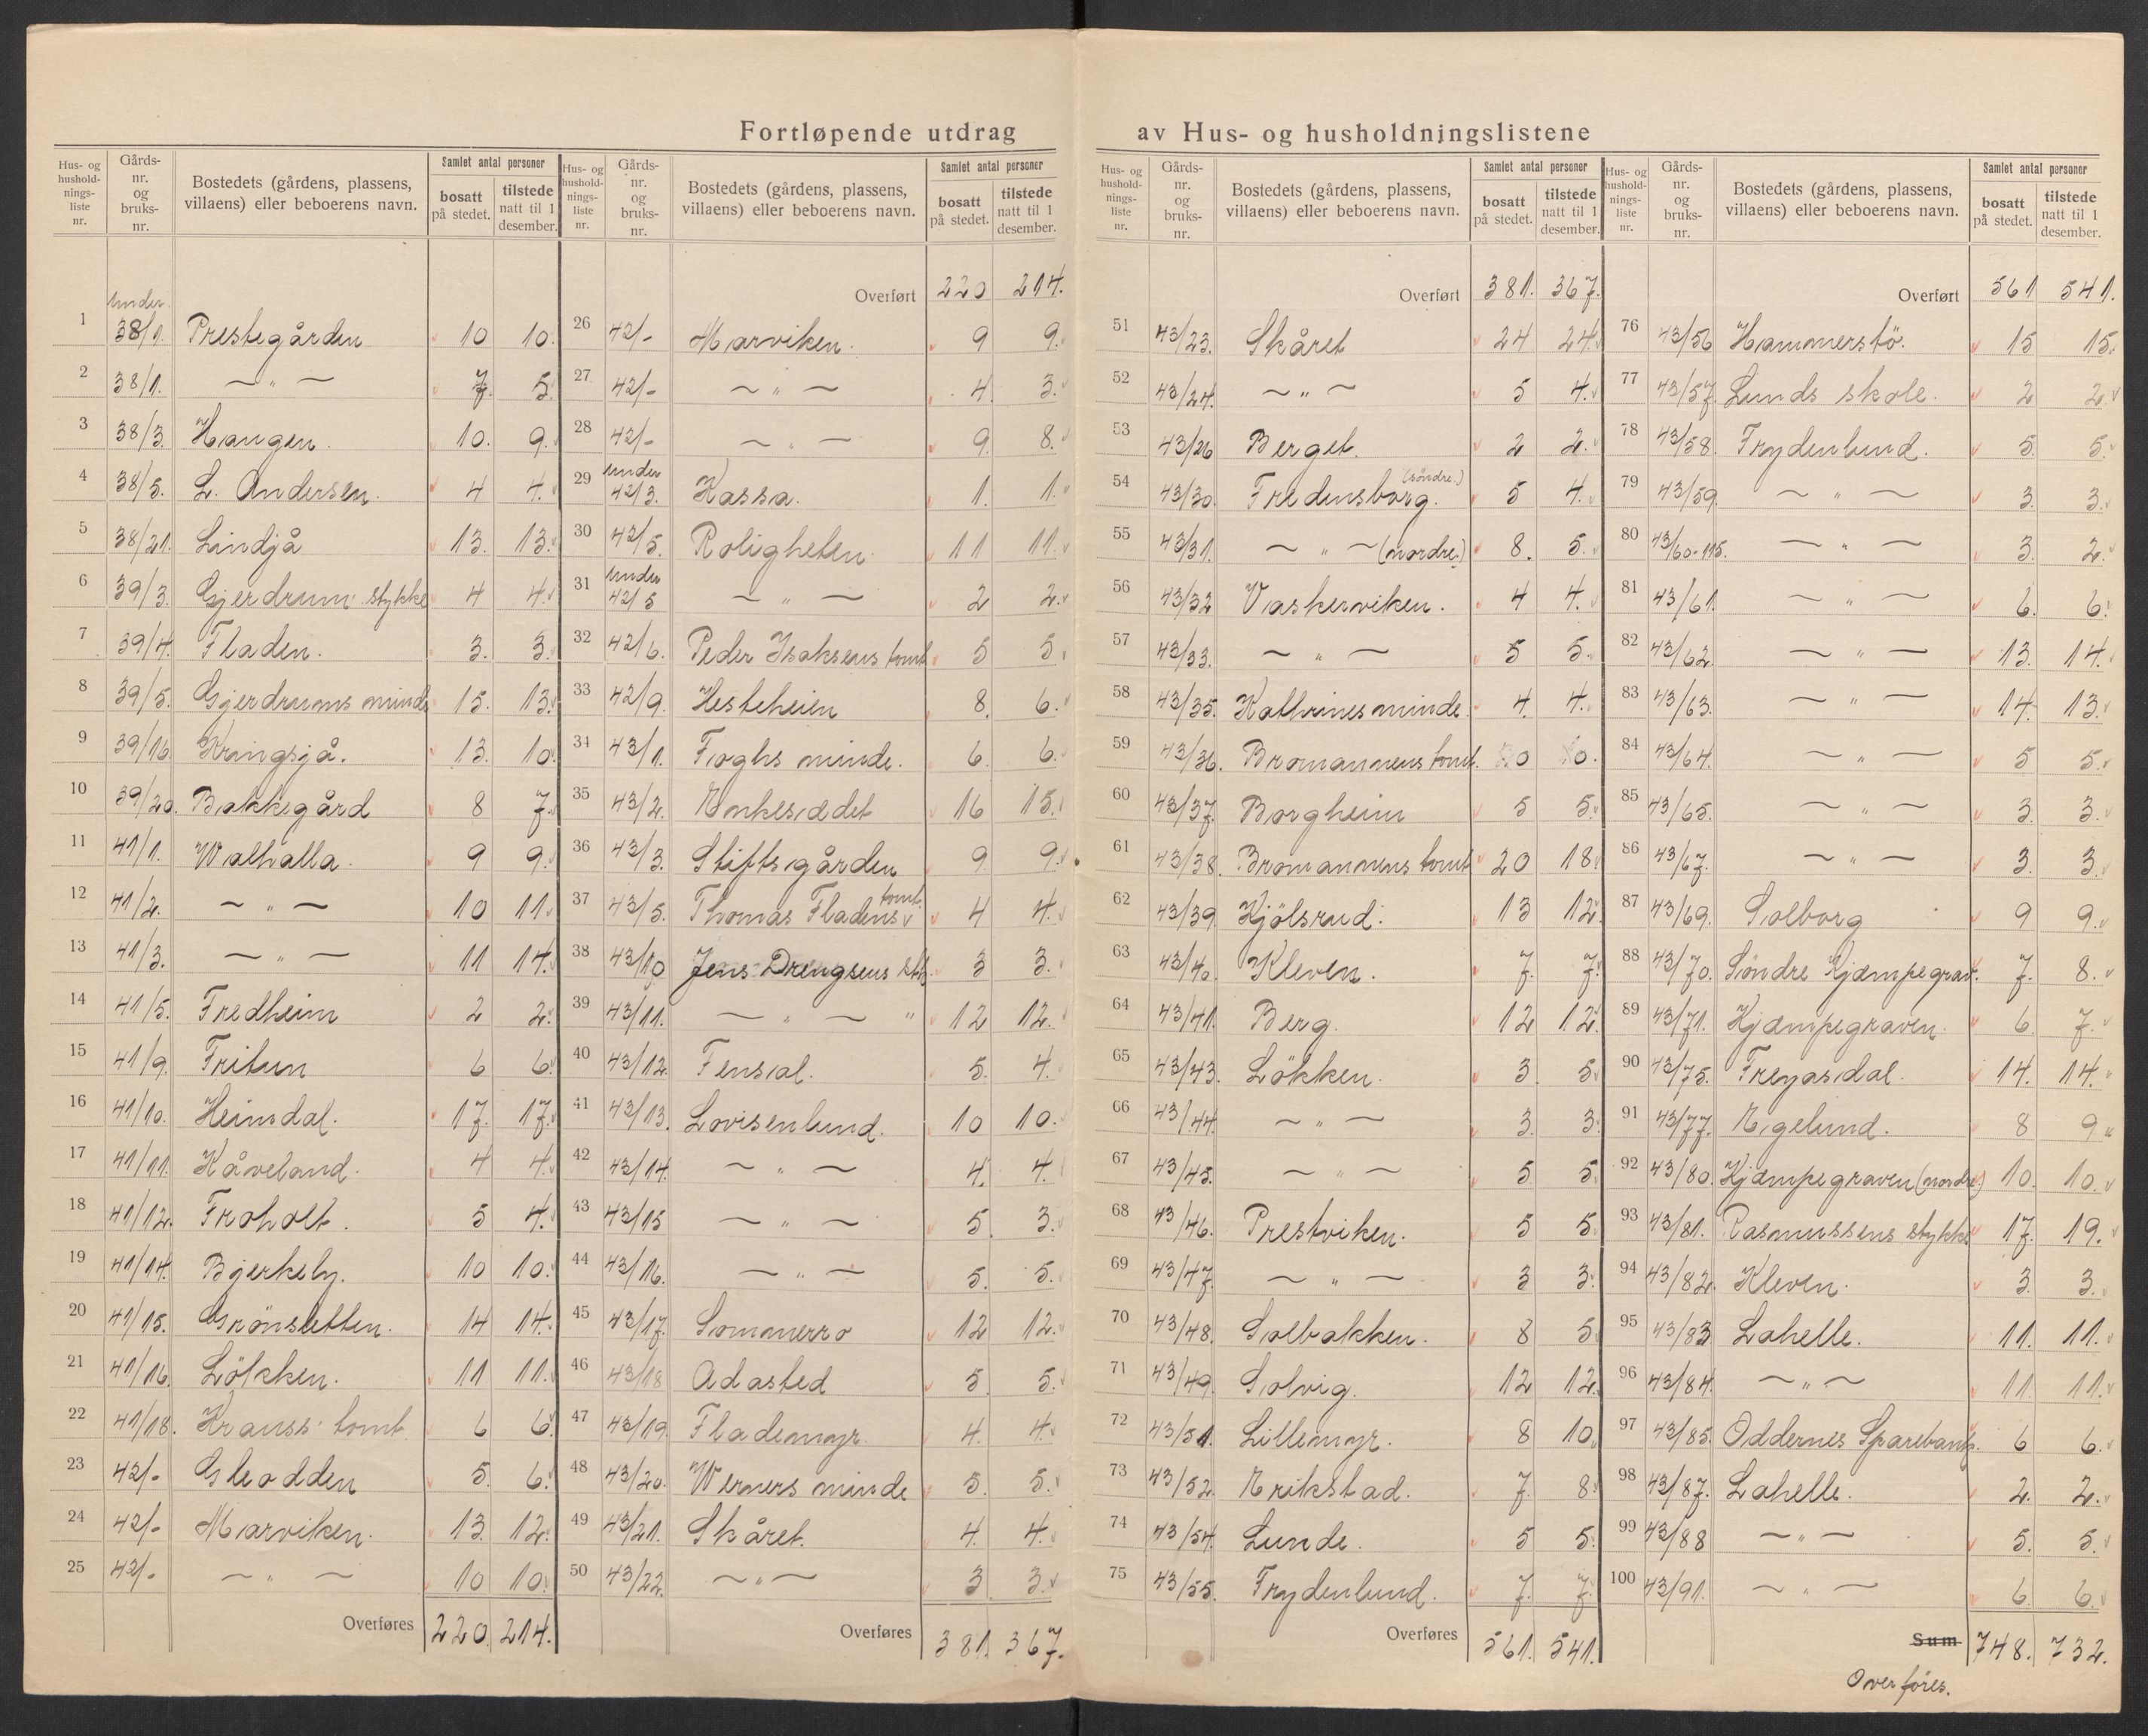 Fortløpende utdrag av Hus- og husholdningslistene
Hus- og hushold-nings-liste nr. Gårds-nr. og bruks-nr. Bostedets (gårdens, plassens, villaens) eller beboerens navn. Samlet antal personer bosatt på stedet. tilstede natt til 1 desember.
1 under 38/1. Prestegården 10 10.
2 38/1. — " — 7. 5.
3 38/3. Haugen. 10. 9.
4 38/5. L. Andersen. 4 4.
5 38/21. Lindjå 13. 13.
6 39/3. Gjerdrum stykke 4 4.
7 39/4. Fladen. 3. 3.
8 39/5. Gjerdrums minde 15. 13.
9 39/16. Kringsjå. 13. 10.
10 39/20. Bakkegård 8 7.
11 41/1. Walhalla. 9 9.
12 41/2. — " — 10 11.
13 41/3. — " — 11 14.
14 41/5. Fredheim 2 2.
15 41/9. Fritun 6 6.
16 41/10. Heimdal. 17. 17.
17 41/11. Kåveland. 4 4.
18 41/12. Froholt. 5 4.
19 41/14. Bjerkely. 10 10.
20 41/15. Grönsletten. 14 14.
21 41/16. Lökken. 11 11.
22 41/18. Krauss' tomt. 6 6.
23 42/- Gleodden 5. 6.
24 42/- Marviken. 13. 12.
25 42/- — " — 10 10.
Overføres 220. 214.
Hus- og hushold-nings-liste nr. Gårds-nr. og bruks-nr. Bostedets (gårdens, plassens, villaens) eller beboerens navn. Samlet antal personer bosatt på stedet. tilstede natt til 1 desember.
Overført 220 214.
26 42/- Marviken. 9 9.
27 42/- — " — 4. 3.
28 42/- — " — 9. 8.
29 under 42/3. Kassa. 1. 1.
30 42/5. Roligheten. 11 11.
31 under 42/5 — " — 2 2.
32 42/6. Peder Isaksens tomt 5 5
33 42/9. Hesteheien 8. 6.
34 43/1. Foghs minde. 6. 6.
35 43/2. Enkesædet 16 15.
36 43/3. Stiftsgården 9 9.
37 43/5. Thomas Fladens tomt. 4 4.
38 43/10 Jens Drengsens 3 3.
39 43/11. — " — " 12 12.
40 43/12. Fensal. 5. 4.
41 43/13. Lovisenlund. 10 10.
42 43/14. — " — 4. 4.
43 43/15 — " — 5. 3.
44 43/16. — " — 5. 5.
45 43/17. Sommerro 12 12.
46 43/18 Adasted 5. 5.
47 43/19. Flademyr. 4. 4.
48 43/20. Werners minde 5. 5.
49 43/21. Skåret. 4. 4.
50 43/22. — " — 3 3.
Overføres 381. 367.
Hus- og hushold-nings-liste nr. Gårds-nr. og bruks-nr. Bostedets (gårdens, plassens, villaens) eller beboerens navn. Samlet antal personer bosatt på stedet. tilstede natt til 1 desember.
Overført 381. 367.
51 43/23. Skåret 24 24.
52 43/24. — " — 5 4.
53 43/26 Berget. 2 2.
54 43/30. Fredensborg. (söndre.) 5 4.
55 43/31. — " — (nordre.) 8. 5.
56 43/32 Vaskerviken. 4 4.
57 43/33. — " — 5 5.
58 43/35. Kathrines minde. 4. 4.
59 43/36. Bromannens tomt. 0 0.
60 43/37. Borgheim 5 5.
61 43/38. Bromannens tomt 20 18.
62 43/39. Kjölsrud. 13 12.
63 43/40. Kleven. 7. 7.
64 43/41. Berg. 12 12.
65 43/43. Lökken. 3. 5.
66 43/44. — " — 3. 3.
67 43/45. — " — 5 5.
68 43/46. Prestviken. 5 5.
69 43/47. — " — 3 3.
70 43/48. Solbakken. 8 5.
71 43/49. Solvig. 12 12.
72 43/51. Lillemyr. 8 10.
73 43/52. Erikstad. 7. 8.
74 43/54. Lunde. 5 5.
75 43/55. Frydenlund. 7. 7.
Overføres 561. 541.
Hus- og hushold-nings-liste nr. Gårds-nr. og bruks-nr. Bostedets (gårdens, plassens, villaens) eller beboerens navn. Samlet antal personer bosatt på stedet. tilstede natt til 1 desember.
Overført 561 541.
76 43/56 Hammerstö. 15 15.
77 43/57. Lunds skole. 2 2.
78 43/58. Frydenlund. 5. 5.
79 43/59. — " — 3. 3.
80 43/60-115. — " — 3. 2.
81 43/61. — " — 6. 6.
82 43/62. — " — 13. 14.
83 43/63. — " — 14. 13.
84 43/64. — " — 5 5.
85 43/65. — " — 3. 3.
86 43/67. — " — 3. 3.
87 43/69. Solborg 9 9.
88 43/70. Söndre Kjæmpegrav. 7. 8.
89 43/71. Kjæmpegraven. 6. 7.
90 43/75. Freyasdal. 14. 14.
91 43/77. Egelund. 8 9.
92 43/80. Kjæmpegraven (nordre) 10. 10.
93 43/81. Rasmussens stykke 17. 19.
94 43/82. Kleven. 3. 3.
95 43/83 Lahelle. 11. 11.
96 43/84. — " — 11. 11.
97 43/85. Oddernes Sparebank. 6 6.
98 43/87. Lahelle. 2. 2.
99 43/88 — " — 5. 5.
100 43/91. — " — 6. 6.
Sum 748. 732.
Overføres.